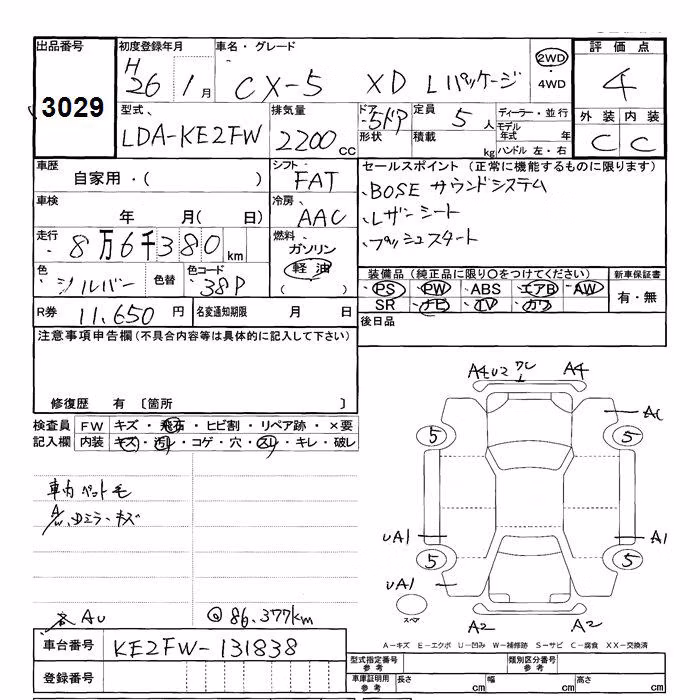 出品番号
3029
初度登録年月
H26 1月
車名・グレード
CX-5 XD Lパッケージ
2WD
4WD
評価点
4
外装 内装
C C
型式
LDA-KE2FW
排気量
2200cc
ドア 5ドア
形状
定員 5人
積載 kg
ディーラー・並行
モデル年式 年
ハンドル 左・右
車歴
自家用・( )
シフト
FAT
車検
年 月( 日)
冷房
AAC
走行
8万6千380km
燃料
ガソリン
軽油
( )
色
シルバー
色替
色コード
38P
R券 11,650円
名変通知期限 月 日
セールスポイント(正常に機能するものに限ります)
・BOSE サウンドシステム
・レザーシート
・プッシュスタート
装備品(純正品に限り○をつけてください)
PS・PW・ABS エアB・AW
SR ナビ TV カワ
新車保証書
有・無
後日品
注意事項申告欄(不具合内容等は具体的に記入して下さい)
修復歴 有 〔箇所 〕
検査員記入欄
FW キズ・飛石・ヒビ割・リペア跡・×要
内装 キズ・汚レ・コゲ・穴・スレ・キレ・破レ
車内ペット毛
A/W、Dミラーキズ
各AU
@86,377km
A4U2 ワレ A4
AC
5 5
UA1 A1
5 5
UA1
スペア
A2 A2
A－キズ E－エクボ U－凹み W－補修跡 S－サビ C－腐食 XX－交換済
車台番号
KE2FW-131838
登録番号
型式指定番号 参考
類別区分番号 参考
車庫証明用 参考
長さ cm 幅 cm 高さ cm